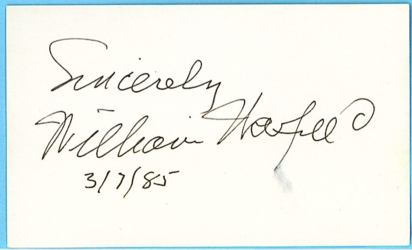 Sincerely
William Hatfield
3/7/85